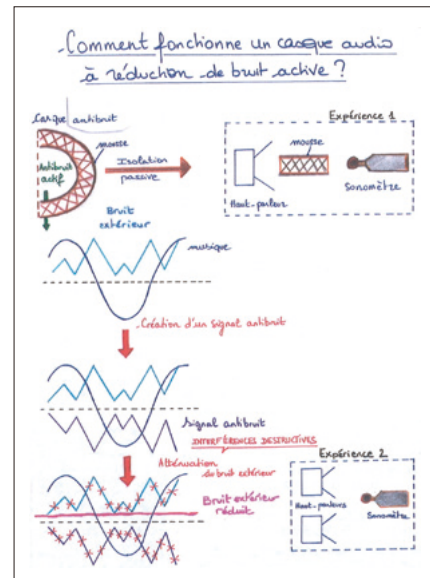 Comment fonctionne un casque audio
à réduction de bruit active ?
Casque antibruit
mousse
Antibruit
actif
Isolation
passive
Expérience 1
mousse
Haut-parleur
Sonomètre
Bruit
extérieur
musique
Création d'un signal antibruit
Signal antibruit
INTERFÉRENCES DESTRUCTIVES
Atténuation
du bruit extérieur
Bruit extérieur
réduit
Expérience 2
Haut-parleurs
Sonomètre